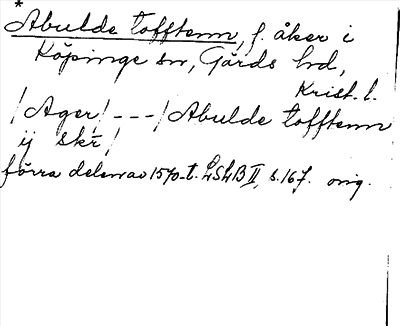 *
Abulde tofftenn, f. åker i
Köpinge sn, Gärds hd,
Krist. l.
/Ager/ - - - / Abulde tofftenn
ij skr/
förra delen av 1570-t. LSLB II, s. 167. orig.